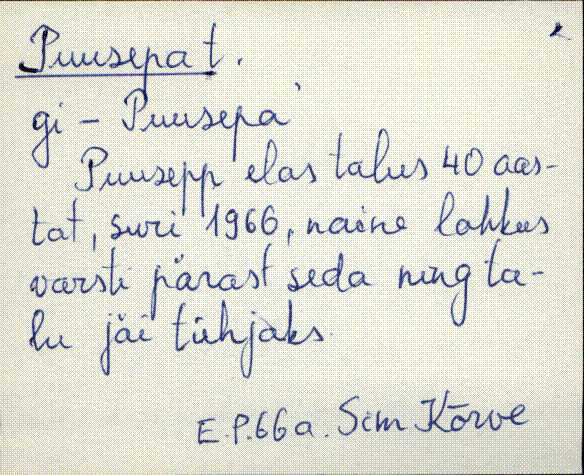 Puusepa t.
gi - Puusepa'
Puusepp elas talus 40 aas-
tat, suri 1966, naine lahkus
varsti pärast seda ning ta-
lu jäi tühjaks.
E.P.66a. Sim Kõrve